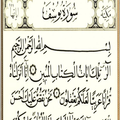 سورة يوسف
بسم الله الرحمن الرحيم
الر تلك آيات الكتاب المبين إنا أنزلناه
قرآنا عربيا لعلكم تعقلون نحن نقص عليك أحسن